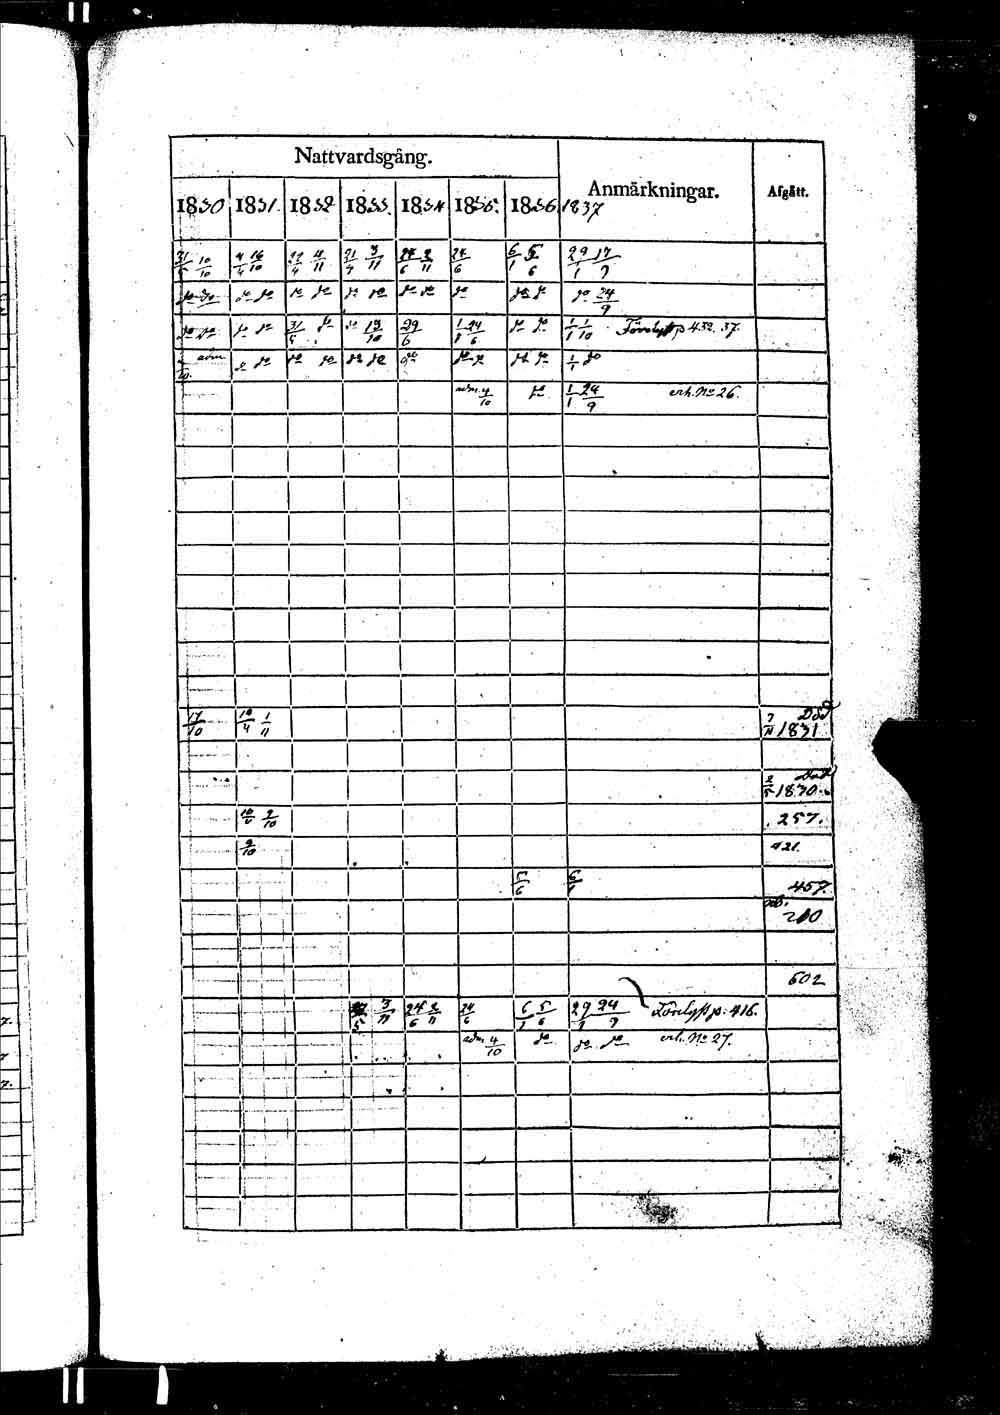 Nattvardsgång.
Anmärkningar. Afgått.
1830 1831. 1832 1833. 1834 1835. 1836 1837
31/5 10/10 4/4 16/10 22/4 4/11 21/4 3/11 24/6 2/11 24/6 6/1 5/6 29/1 17/9
do do do do do do do do do do do do do do 24/9
do do do do 31/5 do do 13/10 29/6 1/1 24/6 do do 1/1 1/10 p 432. 37.
adm do do do do do do do do do do 1/1 do
adm. 4/10 do 1/1 24/9 erh. No 26.
17/10 10/4 1/11 7/11 Död 1831
2/5 Död 1830.
10/4 9/10 257.
9/10 421.
5/6 6/1 457.
210
602
3/11 24/6 2/11 24/6 6/1 5/6 29/1 24/9 p. 416.
adm 4/10 do do do erh. No 27.
7.
7
7.